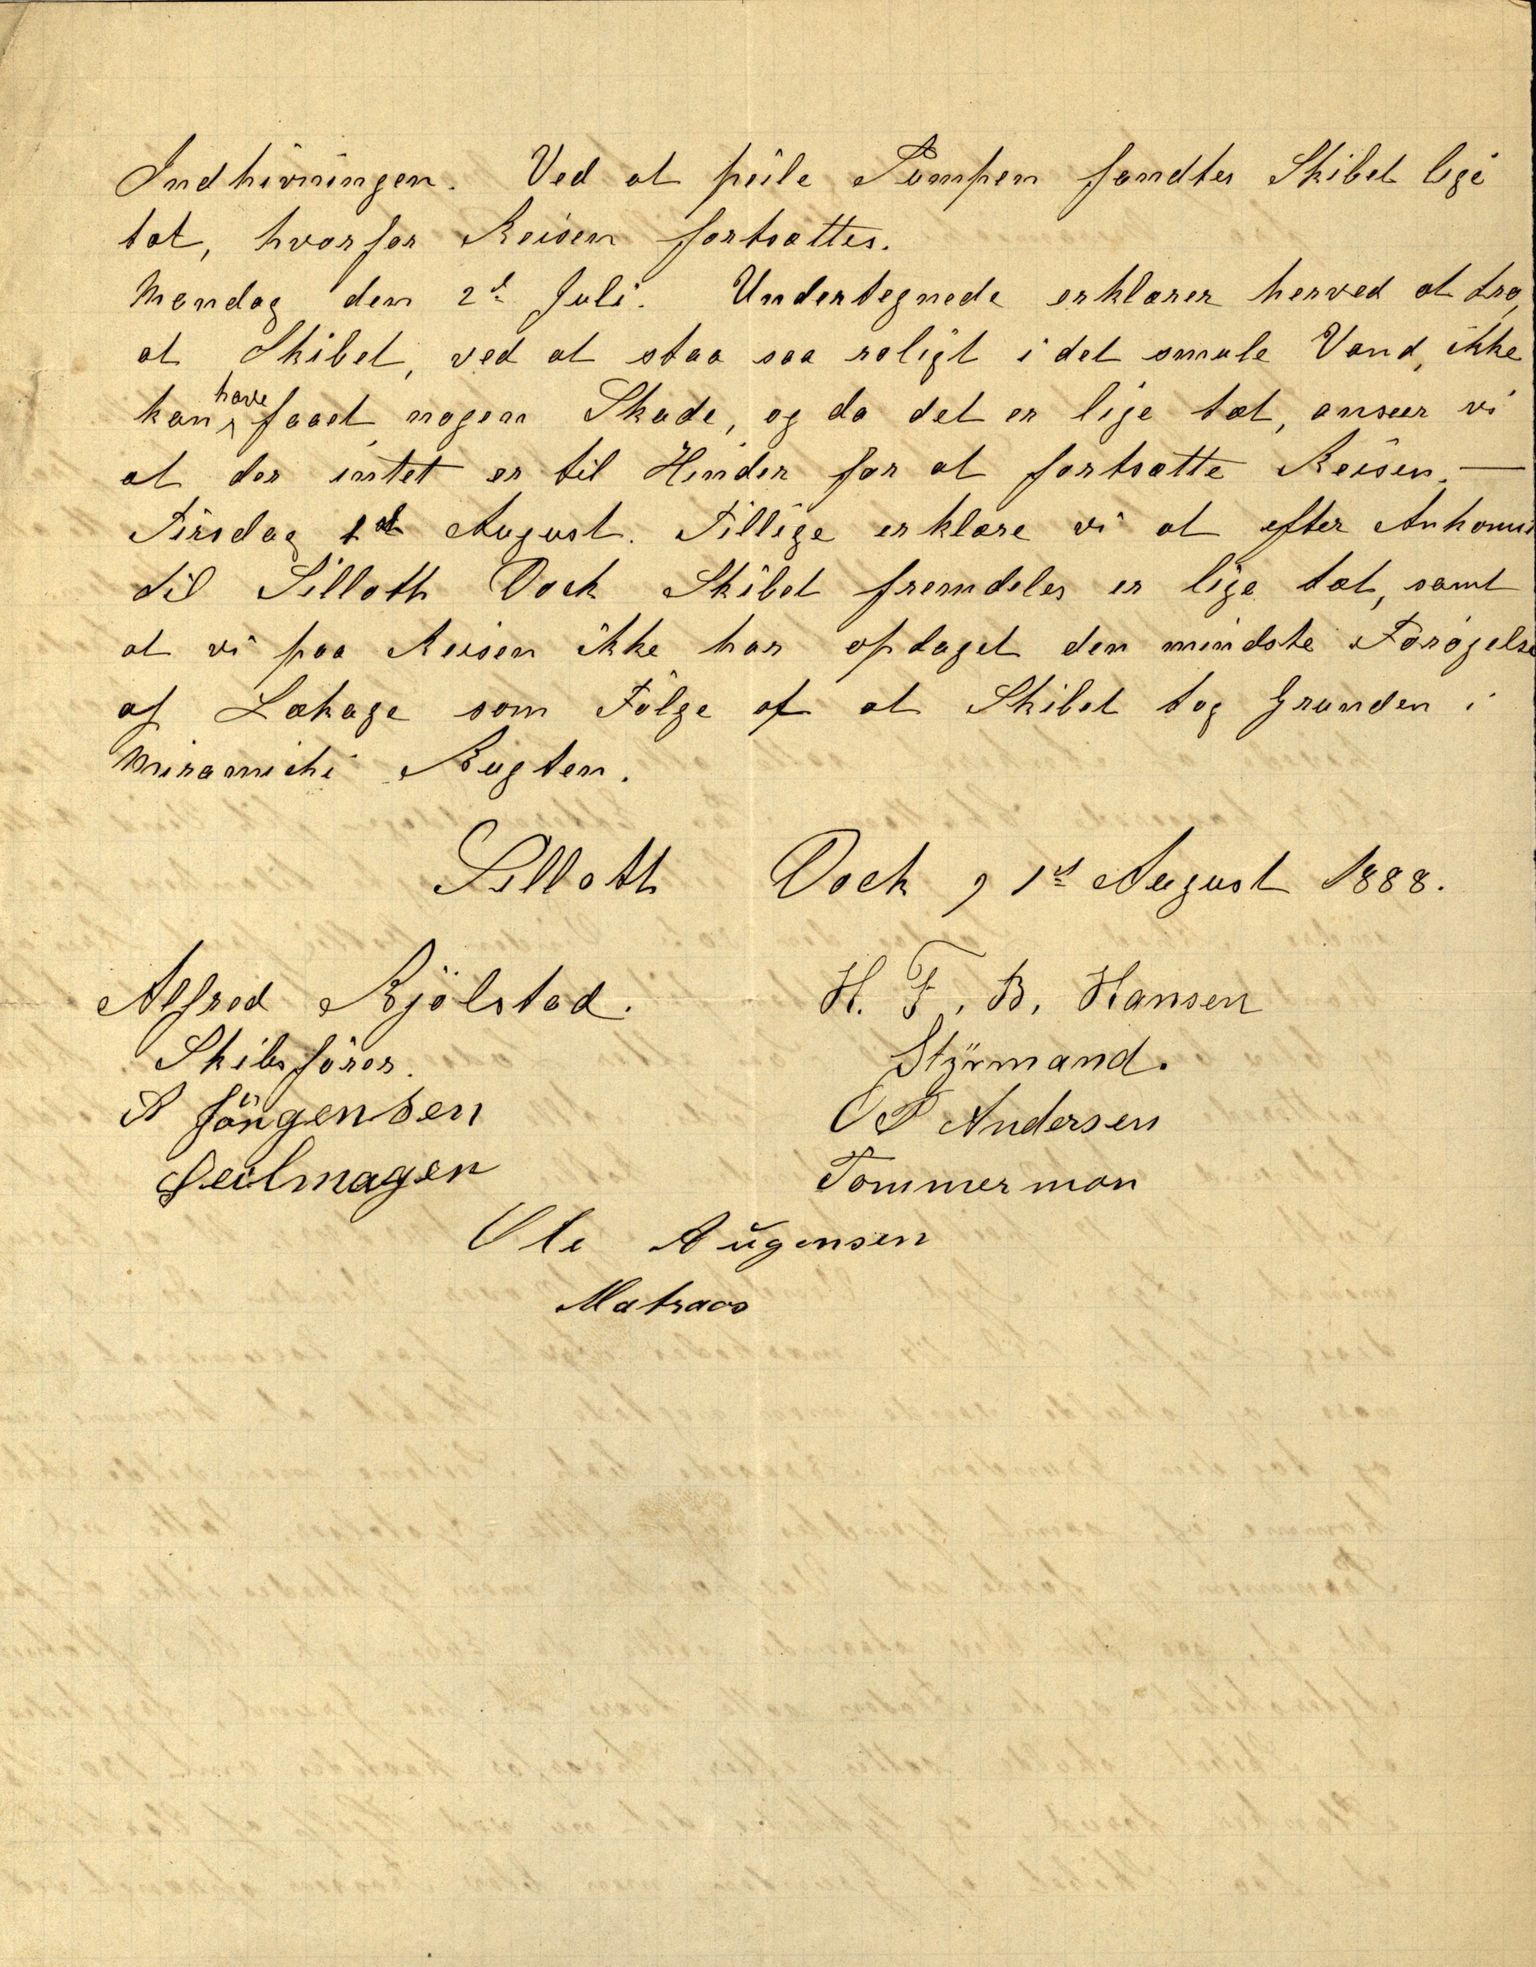 Indhivningen. Ved at peile Pumpen fandtes Skibet lige
tæt, hvorfor Reisen fortsattes.
Mandag den 2d Juli. Undertegnede erklærer herved at tro,
at Skibet, ved at staa saa roligt i det smule Vand, ikke
kan have faaet nogen Skade, og da det er lige tæt, anseer vi
at der intet er til Hinder for at fortsætte Reisen. —
Tirsdag 1st August. Tillige erklære vi at efter Ankomst
til Silloth Dock Skibet fremdeles er lige tæt, samt
at vi paa Reisen ikke har opdaget den mindste Forøgelse
af Lækage som Følge af at Skibet tog Grunden i
Miramichi Bugten.
Silloth Dock, 1st August 1888.
Alfred Kjölstad. H. F. B. Hansen
Skibsförer. Stÿrmand.
A Jörgensen O P Andersen
Seilmager Tømmerman
Ole Augensen
Matraas